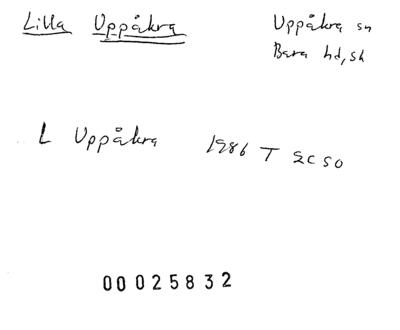 Lilla Uppåkra
Uppåkra sn
Bara hd, sk
L Uppåkra 1986 T 2C SO
00025832